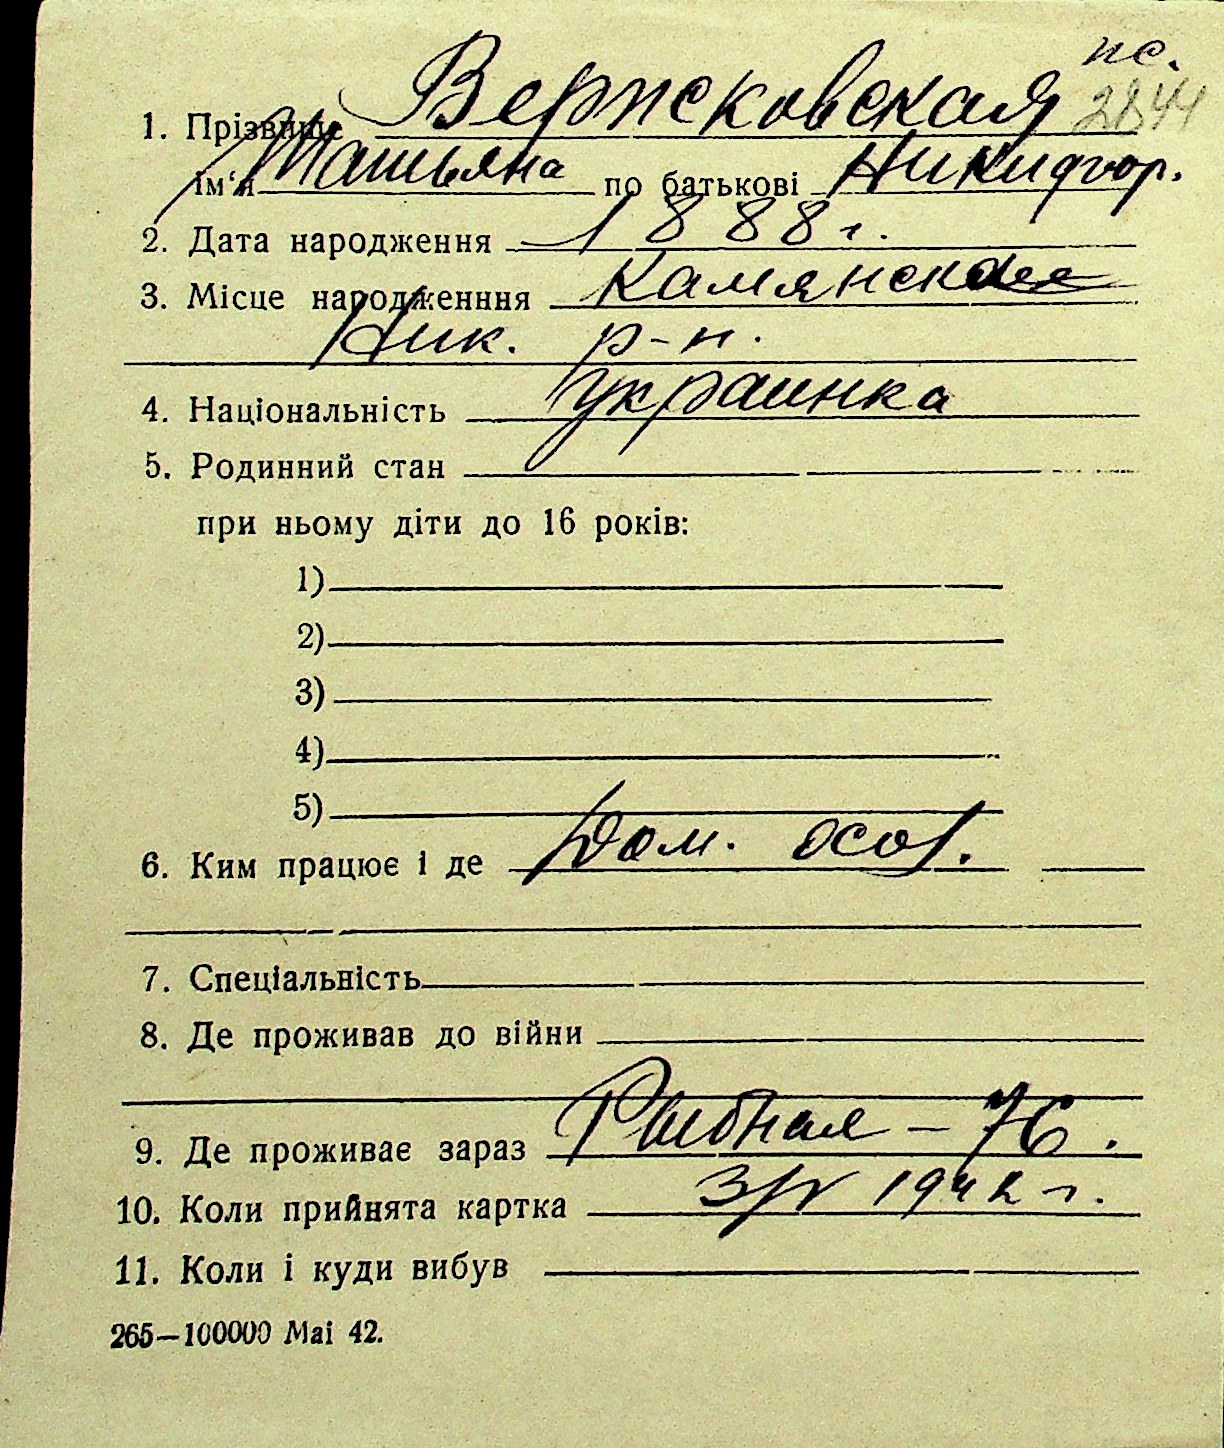 пс.
1. Прізвище Вержековская 2844
Ім'я Татьяна по батькові Никифор.
2. Дата народження 1888 г.
3. Місце народженння Камянск
Ник. р-н.
4. Національність украинка
5. Родинний стан
при ньому діти до 16 років:
1)
2)
3)
4)
5)
6. Ким працює і де Дом. особ.
7. Спеціальність
8. Де проживав до війни
9. Де проживає зараз Рыбная – 76.
10. Коли прийнята картка 3/V 1942 г.
11. Коли і куди вибув
265—100000 Mai 42.